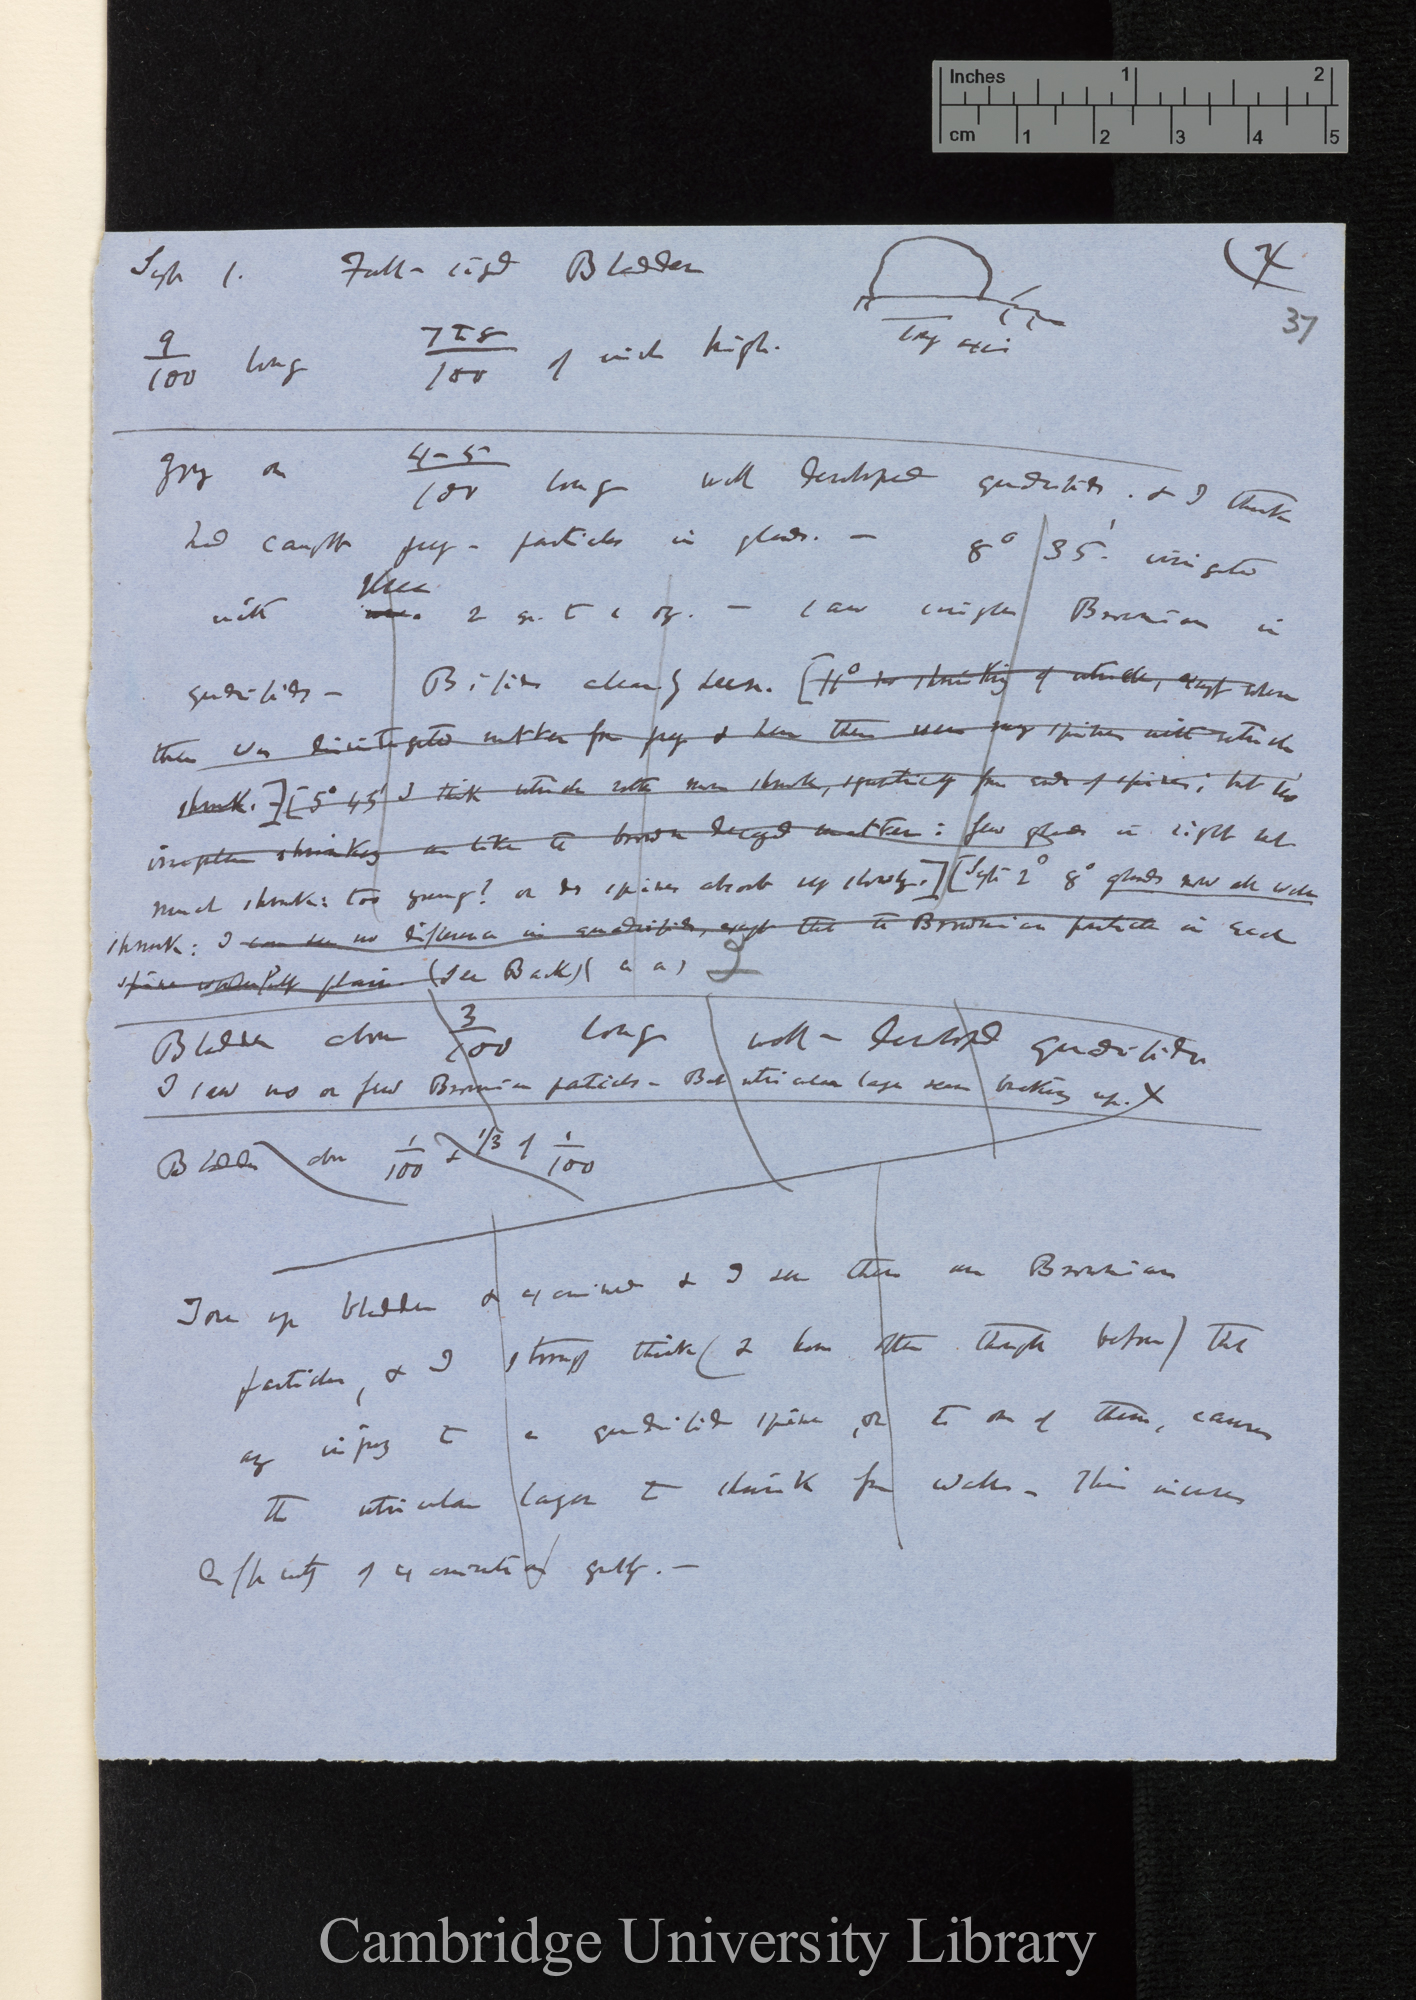 Inches 1 2
cm 1 2 3 4 5
Sept 1. Full-sized Bladder
37
9/100 long 7 to 8/100 of inch high.
long axis
4-5/100 long well developed quadrifids. & I think
had caught prey - particles in glands. — 8° 35'. irrigated
with Urea 2 gr. to 1 oz. — saw single Brownian in
quadrifids - Bifids clearly seen. [11° no shrinking of utricle, except where
there was disintegrated matter from prey & here there were many spines with utricle
shrunk.] [5° 45' I think utricle rather more shrunk, especially from ends of spines; but
shrinking as like to brown decayed matter: few glands in sight not
much shrunk: too young? or do spines absorb up slowly.] [Sept 2° 8° glands now all well
shrunk: I can see no difference in quadrifids, except that the Brownian particle in each
spine wonderfully plain. (See Back) ( a a )
Bladder about 3/100 long well-developed quadrifids
I saw no or few Brownian particles - But utricular layer seen breaking up. X
Bladder about 1/100 & 1/3 of 1/100
Tore up bladder & examined & I see there are Brownian
particles, & I strongly think (I have often thought before) that
any injury to a quadrifid spine, or to one of them, causes
the utricular layer to shrink from walls - This increases
difficulty of examination greatly. —
Cambridge University Library